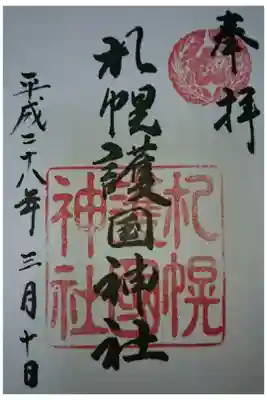 奉拝
札幌護国神社
札幌
護國
神社
平成二十八年 三月十日